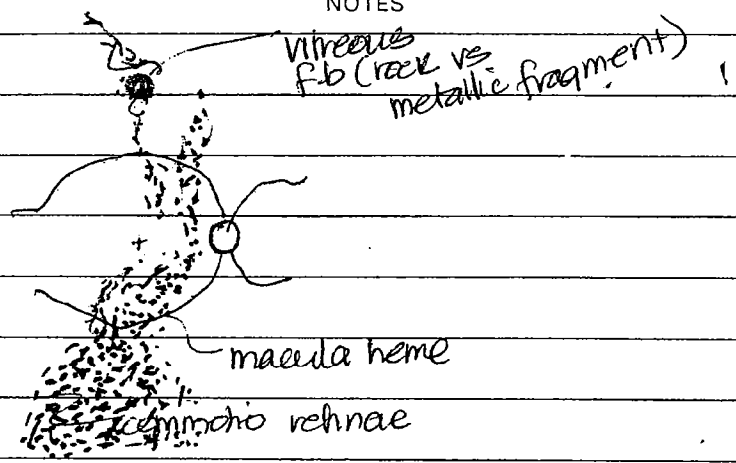 NOTES
vitreous
f.b (rock vs
metallic fragment)
macula heme
commotio retinae